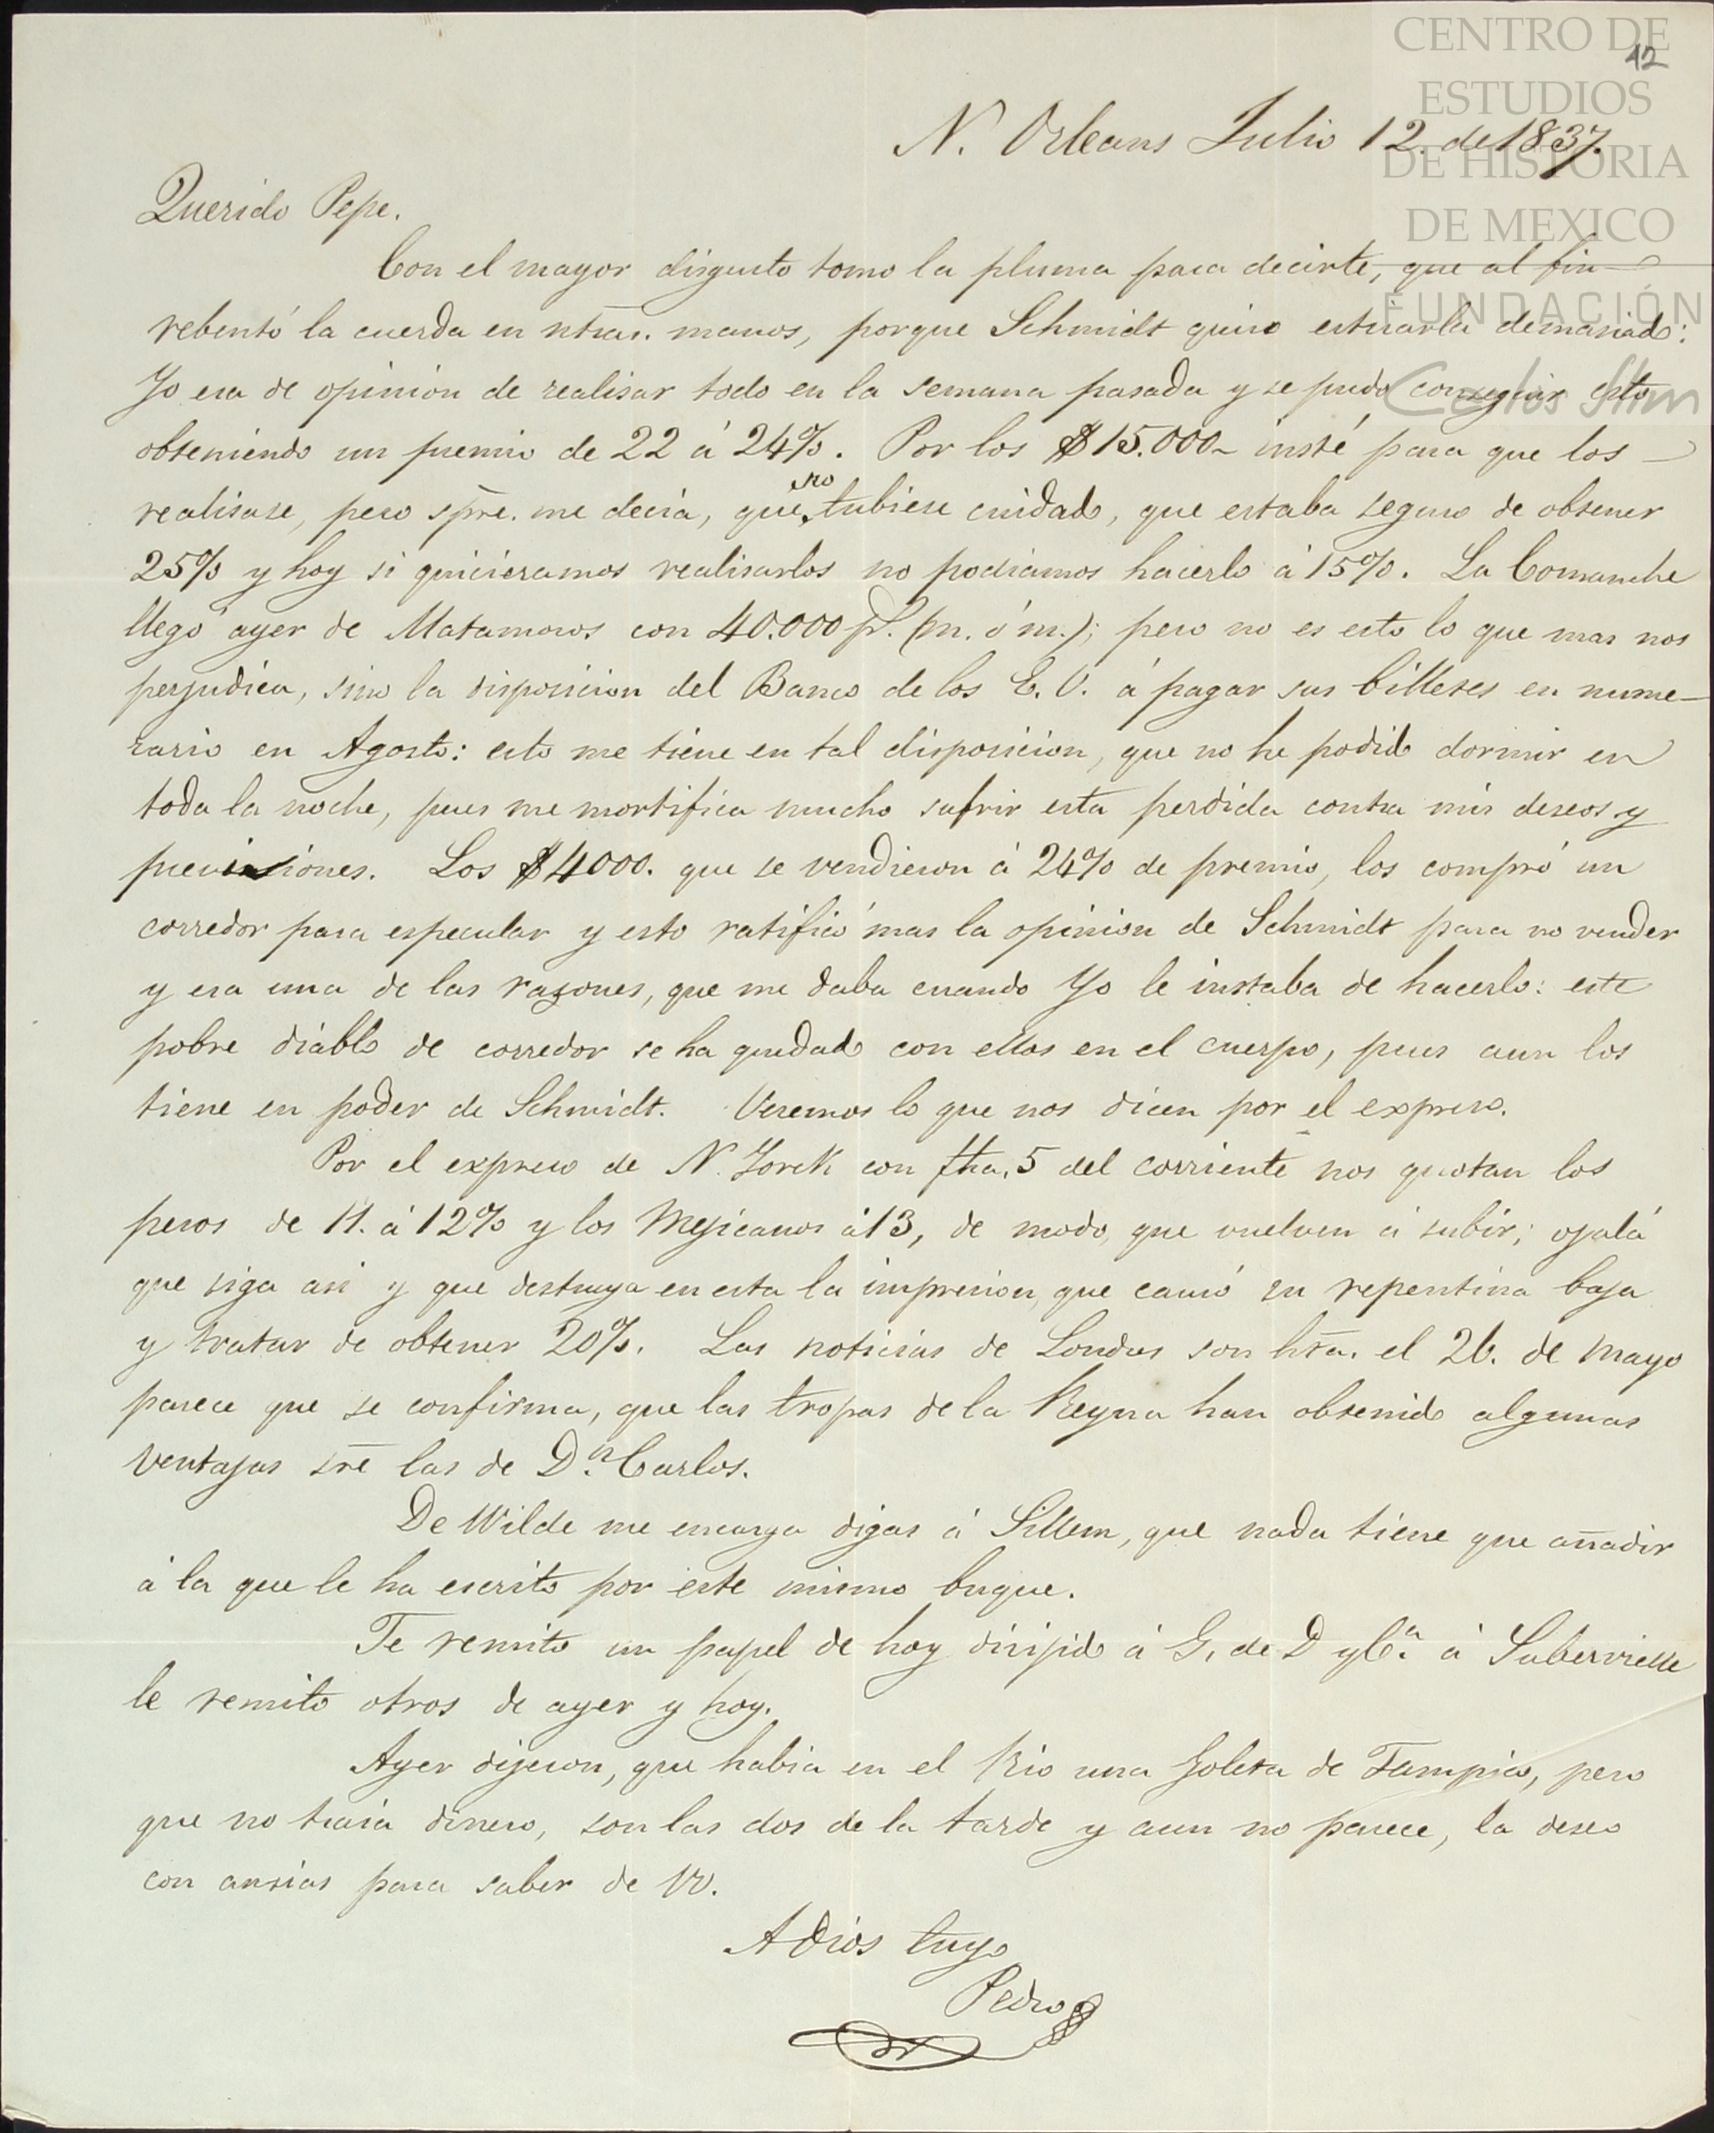 CENTRO DE
42
ESTUDIOS
DE HISTORIA
DE MEXICO
FUNDACIÓN
Carlos Slim
N. Orleans Julio 12. de 1837.
Querido Pepe.
Con el mayor disgusto tomo la pluma para decirte, que al fin
rebentó la cuerda en ntras. manos, porque Schmidt quiso estirarla demasiado:
Yo era de opinion de realisar todo en la semana pasada y se pudo conseguir esto
obteniendo un premio de 22 á 24%. Por los $15.000- insté para que los
realisase, pero spre. me decia, que no tubiese cuidado, que estaba seguro de obtener
25% y hoy si quicieramos realisarlos no podriamos hacerlo á 15%. La Comanche
llegó ayer de Matamoros con 40.000 ps. (m. ó m.); pero no es esto lo que mas nos
perjudica, sino la disposicion del Banco de los E. U. á pagar sus billetes en nume-
rario en Agosto: esto me tiene en tal disposicion, que no he podido dormir en
toda la noche, pues me mortifica mucho sufrir esta perdida contra mis deseos y
previsiones. Los $4000. que se vendieron á 24% de premio, los compró un
corredor para especular y esto ratificó mas la opinion de Schmidt para no vender
y era una de las razones, que me daba cuando Yo le instaba de hacerlo: este
pobre diablo de corredor se ha quedado con ellos en el cuerpo, pues aun los
tiene en poder de Schmidt. Veremos lo que nos dicen por el expreso.
Por el expreso de N. Yorck con fha. 5 del corriente nos quotan los
pesos de 11. á 12% y los Mejicanos á 13, de modo, que vuelven á subir; ojalá
que siga asi y que destruya en esta la impresion, que causó su repentina baja
y tratar de obtener 20%. Las noticias de Londres son hta. el 26. de Mayo
parece que se confirma, que las tropas de la Reyna han obtenido algunas
ventajas sre las de Dn. Carlos.
De Wilde me encarga digas á Sillem, que nada tiene que añadir
á la que le ha escrito por este mismo buque.
Te remito un papel de hoy dirijido á G. de D y Ca. á Subervielle
le remito otros de ayer y hoy.
Ayer dijeron, que habia en el Rio una Goleta de Tampico, pero
que no traia dinero, son las dos de la tarde y aun no parece, la deseo
con ansias para saber de VV.
Adios tuyo
Pedro